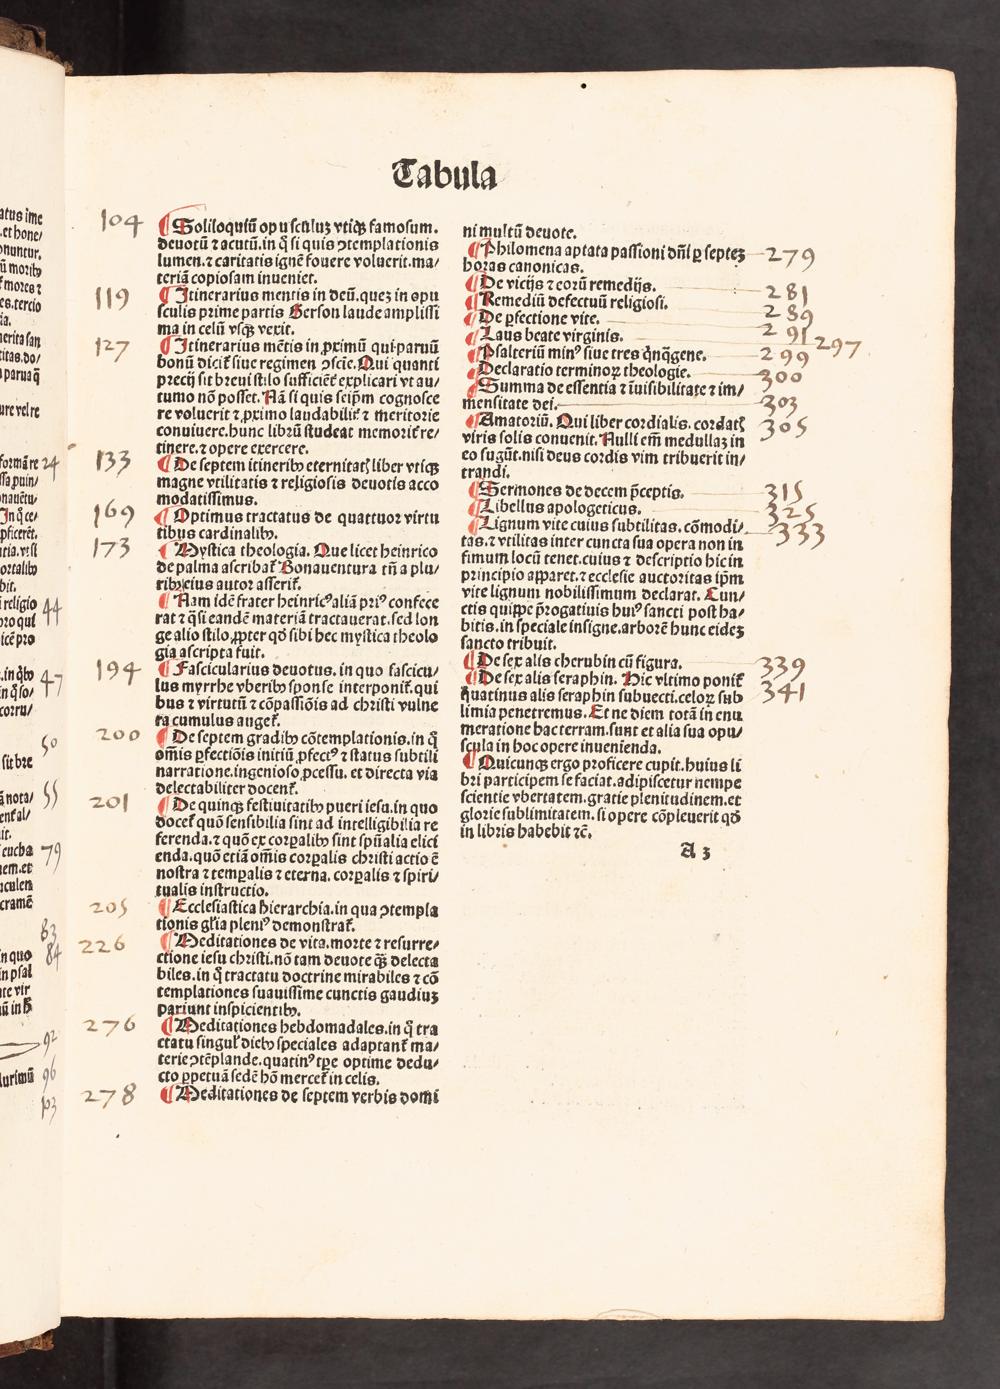 Tabula
104 ¶ Soliloquiū opuſculuꝫ vtiqꝫ famoſum.
deuotū ⁊ acutū.in q̄ ſi quis ꝯtemplationis
lumen.⁊ caritatis ignē fouere voluerit.ma/
teriā copioſam inueniet.
119 ¶ Itinerarius mentis in deū.queꝫ in opu
ſculis prime partis Gerſon laude ampliſſi
ma in celū vſqꝫ vexit.
127 ¶ Itinerarius mētis in ꝓximū qui paruū
bonū dicit᷑ ſiue regimen ꝯſcīe.Qui quanti
precij ſit breui ſtilo ſufficiēt᷑ explicari vt au/
tumo nō poſſet.Nā ſi quis ſeip̄m cognoſce
re voluerit ⁊ ꝓximo laudabilit᷑ ⁊ meritorie
conuiuere.hunc librū ſtudeat memorit᷑ re/
tinere.⁊ opere exercere.
133 ¶ De ſeptem itineribꝰ eternitatꝭ liber vtiqꝫ
magne vtilitatis ⁊ religioſis deuotis acco
modatiſſimus.
169 ¶ Optimus tractatus de quattuor virtu
tibus cardinalibꝰ.
173 ¶ Myſtica theologia. Que licet heinrico
de palma aſcribat᷑ Bonauentura tn̄ a plu/
ribꝰ eius autor aſſerit᷑.
¶ Nam idē frater heinricꝰ aliā priꝰ confece
rat ⁊ q̄ſi eandē materiā tractauerat.ſed lon
ge alio ſtilo.ꝓpter qd̄ ſibi hec myſtica theolo
gia aſcripta fuit.
194 ¶ Faſcicularius deuotus. in quo faſcicu/
lus myrrhe vberibꝰ ſponſe interponit᷑.qui
bus ⁊ virtutū ⁊ cōpaſſiōis ad chriſti vulne
ra cumulus auget᷑.
200 ¶ De ſeptem gradibꝰ cōtemplationis.in q̄
om̄is ꝑfectiōis initiū ꝓfectꝰ ⁊ ſtatus ſubtili
narratione.ingenioſo ꝓceſſu. et directa via
delectabiliter docent᷑.
201 ¶ De quinqꝫ feſtiuitatibꝰ pueri ieſu.in quo
docet᷑ quō ſenſibilia ſint ad intelligibilia re
ferenda.⁊ quō ex corꝑalibꝰ ſint ſpūalia elici
enda.quō etiā om̄is corꝑalis chriſti actio ē
noſtra ⁊ temꝑalis ⁊ eterna. corꝑalis ⁊ ſpiri/
tualis inſtructio.
205 ¶ Eccleſiaſtica hierarchia.in qua ꝯtempla
tionis gl̄ia pleniꝰ demonſtrat᷑.
226 ¶ Meditationes de vita.morte ⁊ reſurre/
ctione ieſu chriſti.nō tam deuote qꝫ̄ delecta
biles.in q̄ tractatu doctrine mirabiles ⁊ cō
templationes ſuauiſſime cunctis gaudiuꝫ
pariunt inſpicientibꝰ.
276 ¶ Meditationes hebdomadales.in q̄ tra
ctatu ſingul᷑ diebꝰ ſpeciales adaptant᷑ ma/
terie ꝯtēplande.quatinꝰ tꝑe optime dedu/
cto ꝑpetuā ſedē hō mercet᷑ in celis.
278 ¶ Meditationes de ſeptem verbis domi
ni multū deuote.
¶ Philomena aptata paſſioni dn̄i ꝑ ſepteꝫ 279
horas canonicas.
¶ De vicijs ⁊ eorū remedijs. 281
¶ Remediū defectuū religioſi. 289
¶ De ꝑfectione vite. 291
¶ Laus beate virginis. 297
¶ Pſalteriū minꝰ ſiue tres q̄nqꝫgene. 299
¶ Declaratio terminoꝝ theologie. 300
¶ Summa de eſſentia ⁊ īuiſibilitate ⁊ im/
menſitate dei. 303
¶ Amatoriū. Qui liber cordialis. cordatꝭ 305
viris ſolis conuenit. Nulli em̄ medullaꝫ in
eo ſugūt.niſi deus cordis vim tribuerit in/
trandi.
¶ Sermones de decem p̄ceptis. 315
¶ Libellus apologeticus. 325
¶ Lignum vite cuius ſubtilitas. cōmodi/ 333
tas.⁊ vtilitas inter cuncta ſua opera non in
fimum locū tenet.cuius ⁊ deſcriptio hic in
principio apparet.⁊ eccleſie auctoritas ip̄m
vite lignum nobiliſſimum declarat. Cun/
ctis quippe p̄rogatiuis huiꝰ ſancti poſt ha/
bitis.in ſpeciale inſigne.arborē hunc eideꝫ
ſancto tribuit.
¶ De ſex alis cherubin cū figura. 339
¶ De ſex alis ſeraphin. Hic vltimo ponit᷑ 341
quatinus alis ſeraphin ſubuecti.celoꝝ ſub
limia penetremus. Et ne diem totā in enu
meratione hac terram.ſunt et alia ſua opu/
ſcula in hoc opere inuenienda.
¶ Quicunqꝫ ergo proficere cupit.huius li
bri participem ſe faciat.adipiſcetur nempe
ſcientie vbertatem.gratie plenitudinem.et
glorie ſublimitatem.ſi opere cōpleuerit qd̄
in libris habebit ⁊c̄.
A 3